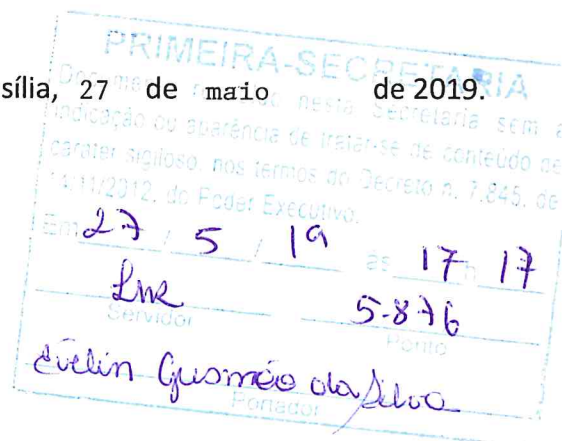 PRIMEIRA-SECRETARIA
sília, 27 de maio de 2019.
Documento recebido nesta Secretaria sem a
indicação ou aparência de tratar-se de conteúdo de
caráter sigiloso, nos termos do Decreto n. 7.845, de
14/11/2012, do Poder Executivo.
Em 27 / 5 / 19 às 17 h 17
5-876
Servidor Ponto
Evelin Gusmão da Silva
Portador